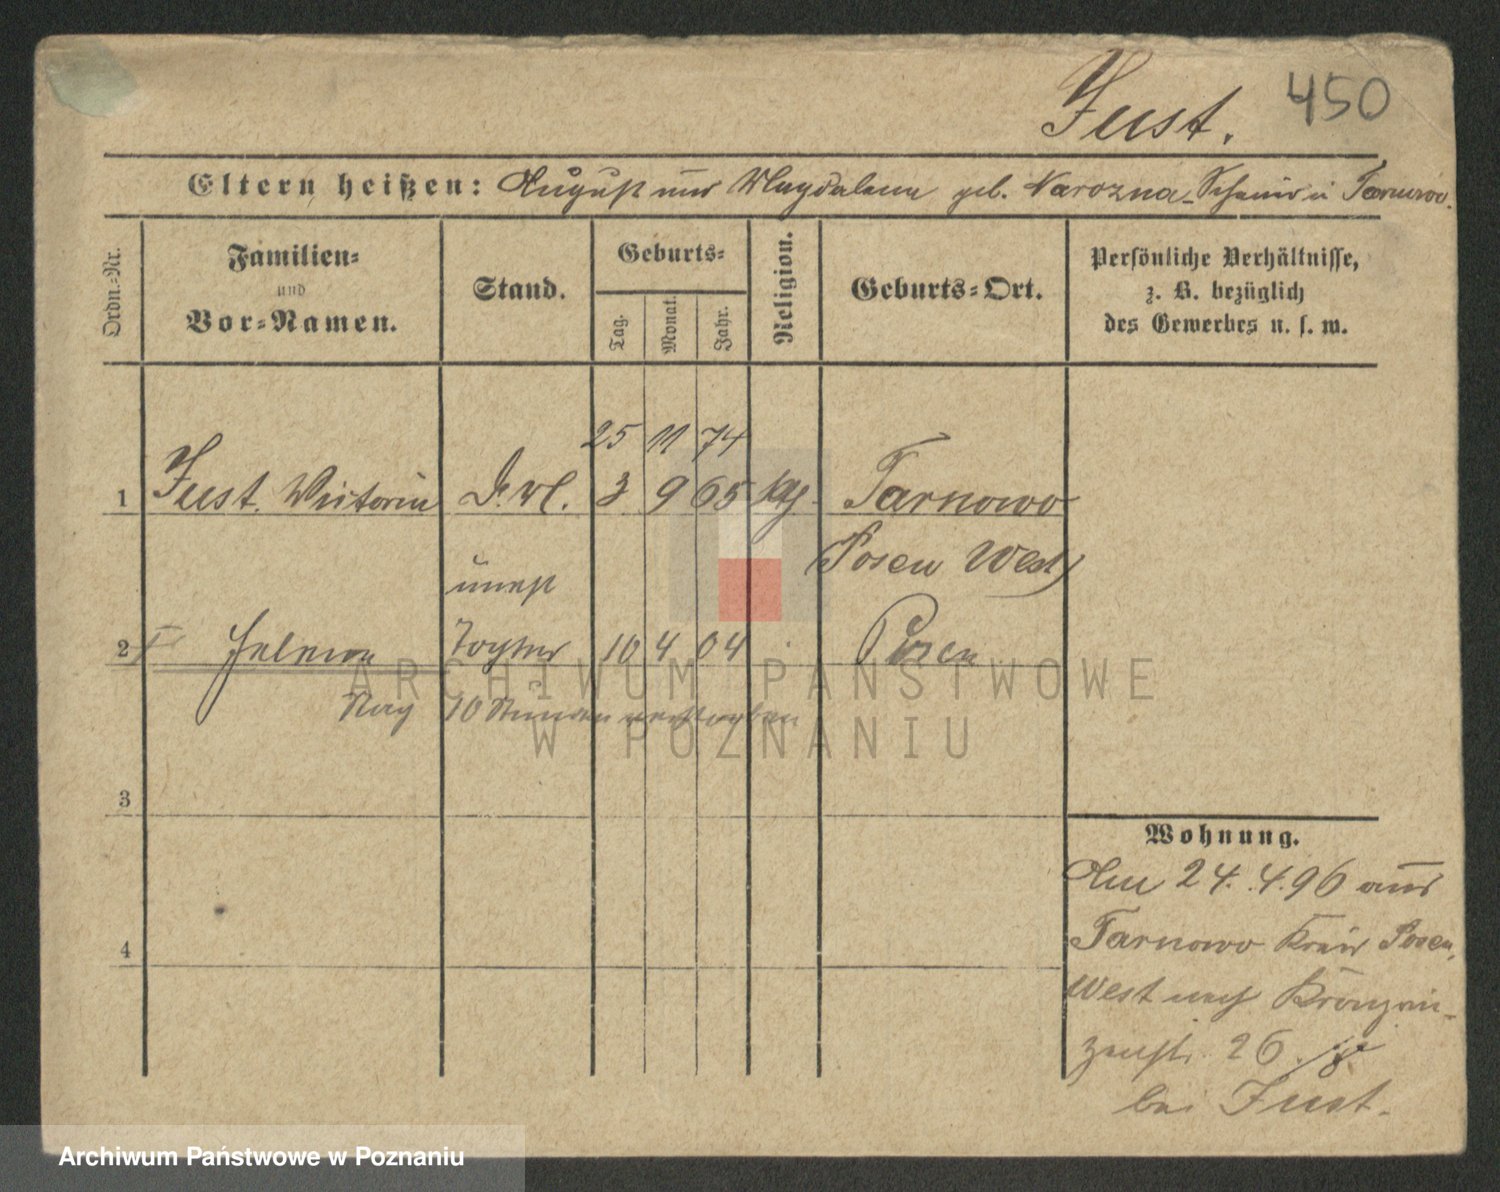 Just.
450
Eltern heißen: August und Magdalena geb. Narozna in Tarnowo.
Ordn.-Nr.
Familien-
und
Vor-Namen.
Stand.
Geburts-
Tag.
Monat.
Jahr.
Religion.
Geburts-Ort.
Persönliche Verhältnisse,
z. B. bezüglich
des Gewerbes u. s. w.
25 11 74
1 Just. Victoria 3 9 65 kth. Tarnowo
(Posen West)
unehl
2 Helena Tochter 10 4 04 Posen
Nach 10 Stunden verstorben
3
4
Wohnung.
Am 24.4.96 aus
Tarnowo Kreis Posen
West nach Kronprin-
zenstr. 26.
bei Just.
ARCHIWUM PAŃSTWOWE
W POZNANIU
Archiwum Państwowe w Poznaniu